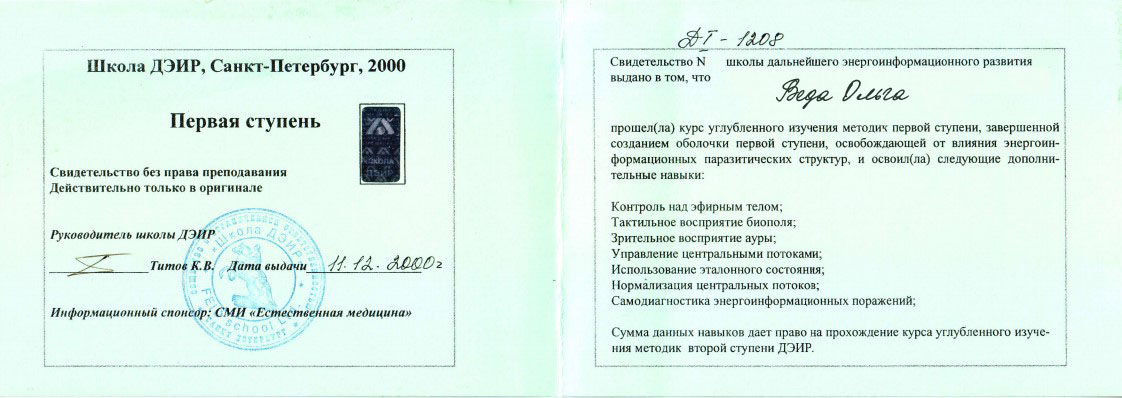 Школа ДЭИР, Санкт-Петербург, 2000
Первая ступень
Свидетельство без права преподавания
Действительно только в оригинале
Руководитель школы ДЭИР
Титов К.В. Дата выдачи 11.12.2000г
Информационный спонсор: СМИ «Естественная медицина»
«Школа ДЭИР»
School Ltd
ДТ - 1208
Свидетельство N школы дальнейшего энергоинформационного развития
выдано в том, что
Веда Ольга
прошел(ла) курс углубленного изучения методик первой ступени, завершенной
созданием оболочки первой ступени, освобождающей от влияния энергоин-
формационных паразитических структур, и освоил(ла) следующие дополни-
тельные навыки:
Контроль над эфирным телом;
Тактильное восприятие биополя;
Зрительное восприятие ауры;
Управление центральными потоками;
Использование эталонного состояния;
Нормализация центральных потоков;
Самодиагностика энергоинформационных поражений;
Сумма данных навыков дает право на прохождение курса углубленного изуче-
ния методик второй ступени ДЭИР.